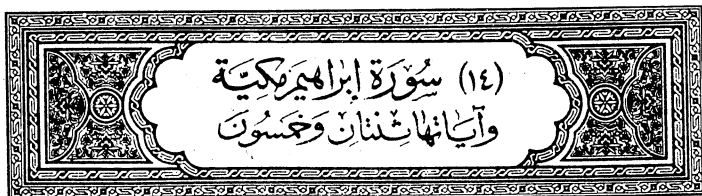 (١٤) سُورَة إبراهيم مكيّة
وآياتها ثِنتَان وَخمسُون